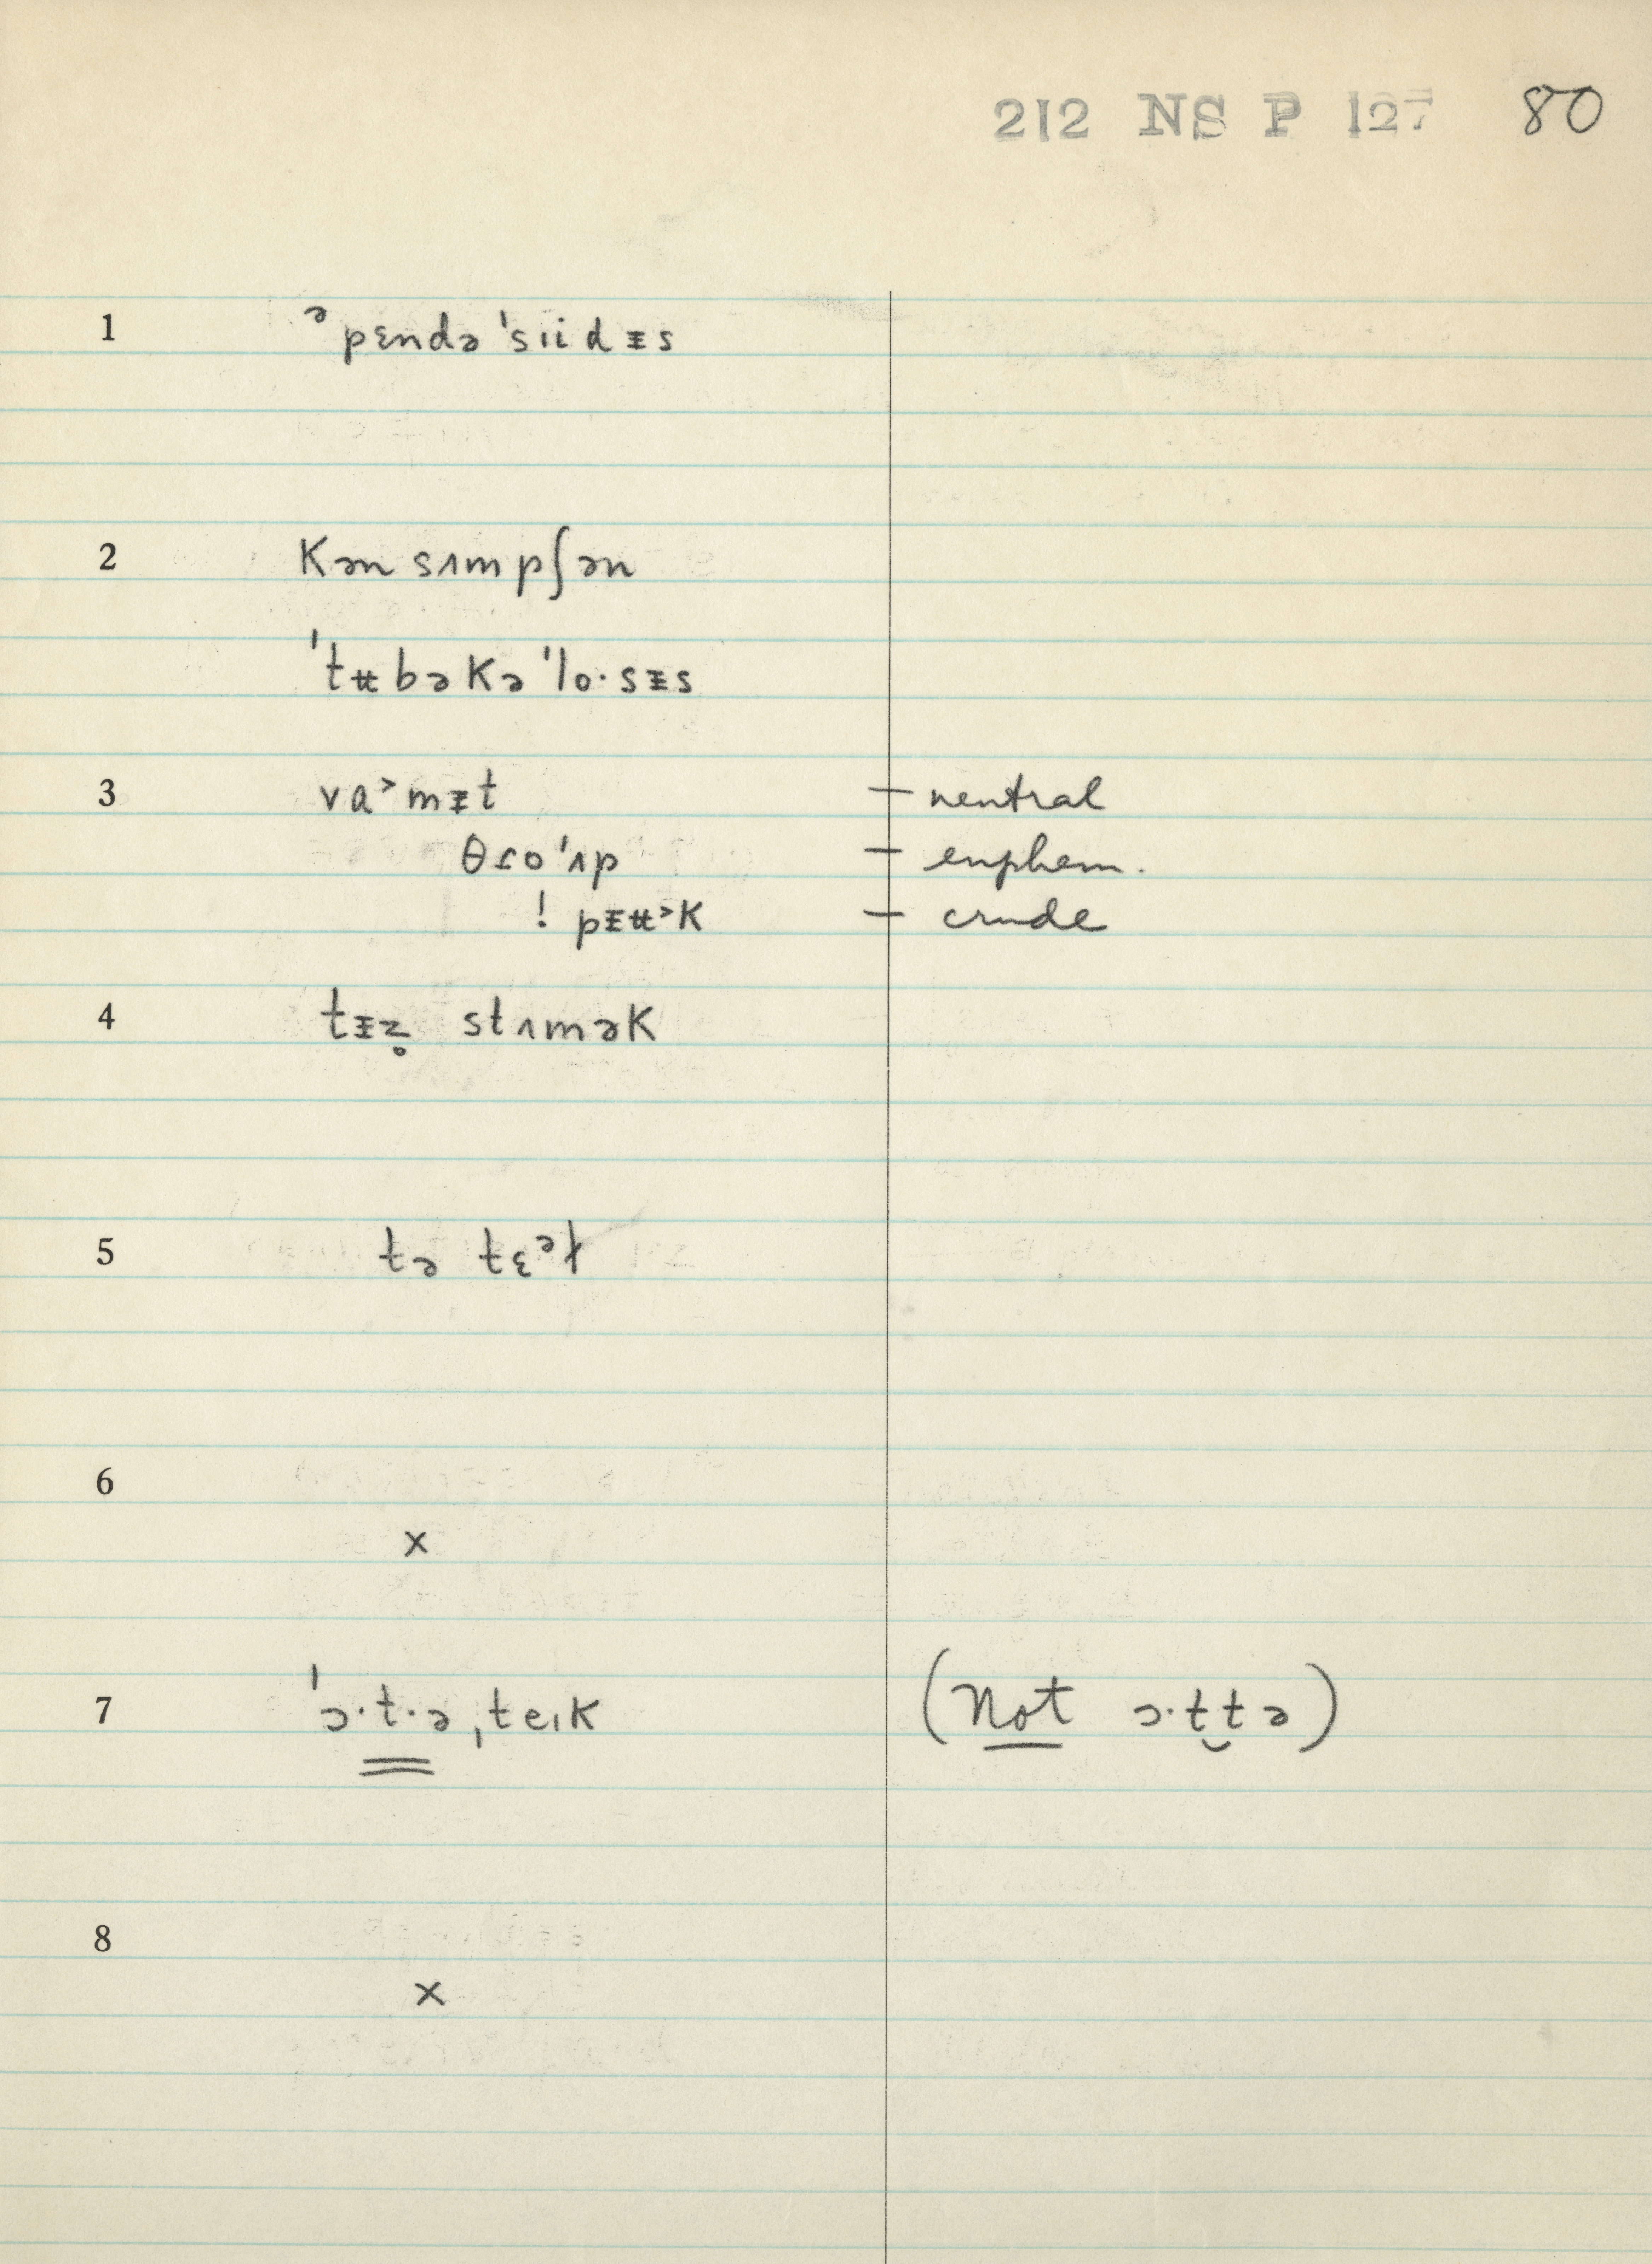 212 NS P 127 80
1 ᵊpɛndə'sɪidɪ̵s
2 Kən sʌmpʃən
'tʉbəKə'lo·sɪ̵s
3 va˃mɪ̵t — neutral
θɾo'ʌp — euphem.
! pɪ̵ʉ˃K — crude
4 tɪ̵z̥ stʌməK
5 tə tɛᵊɫ
6
x
7 'ɔ·t·ə,teɪK (Not ɔ·t̮tə)
8
x